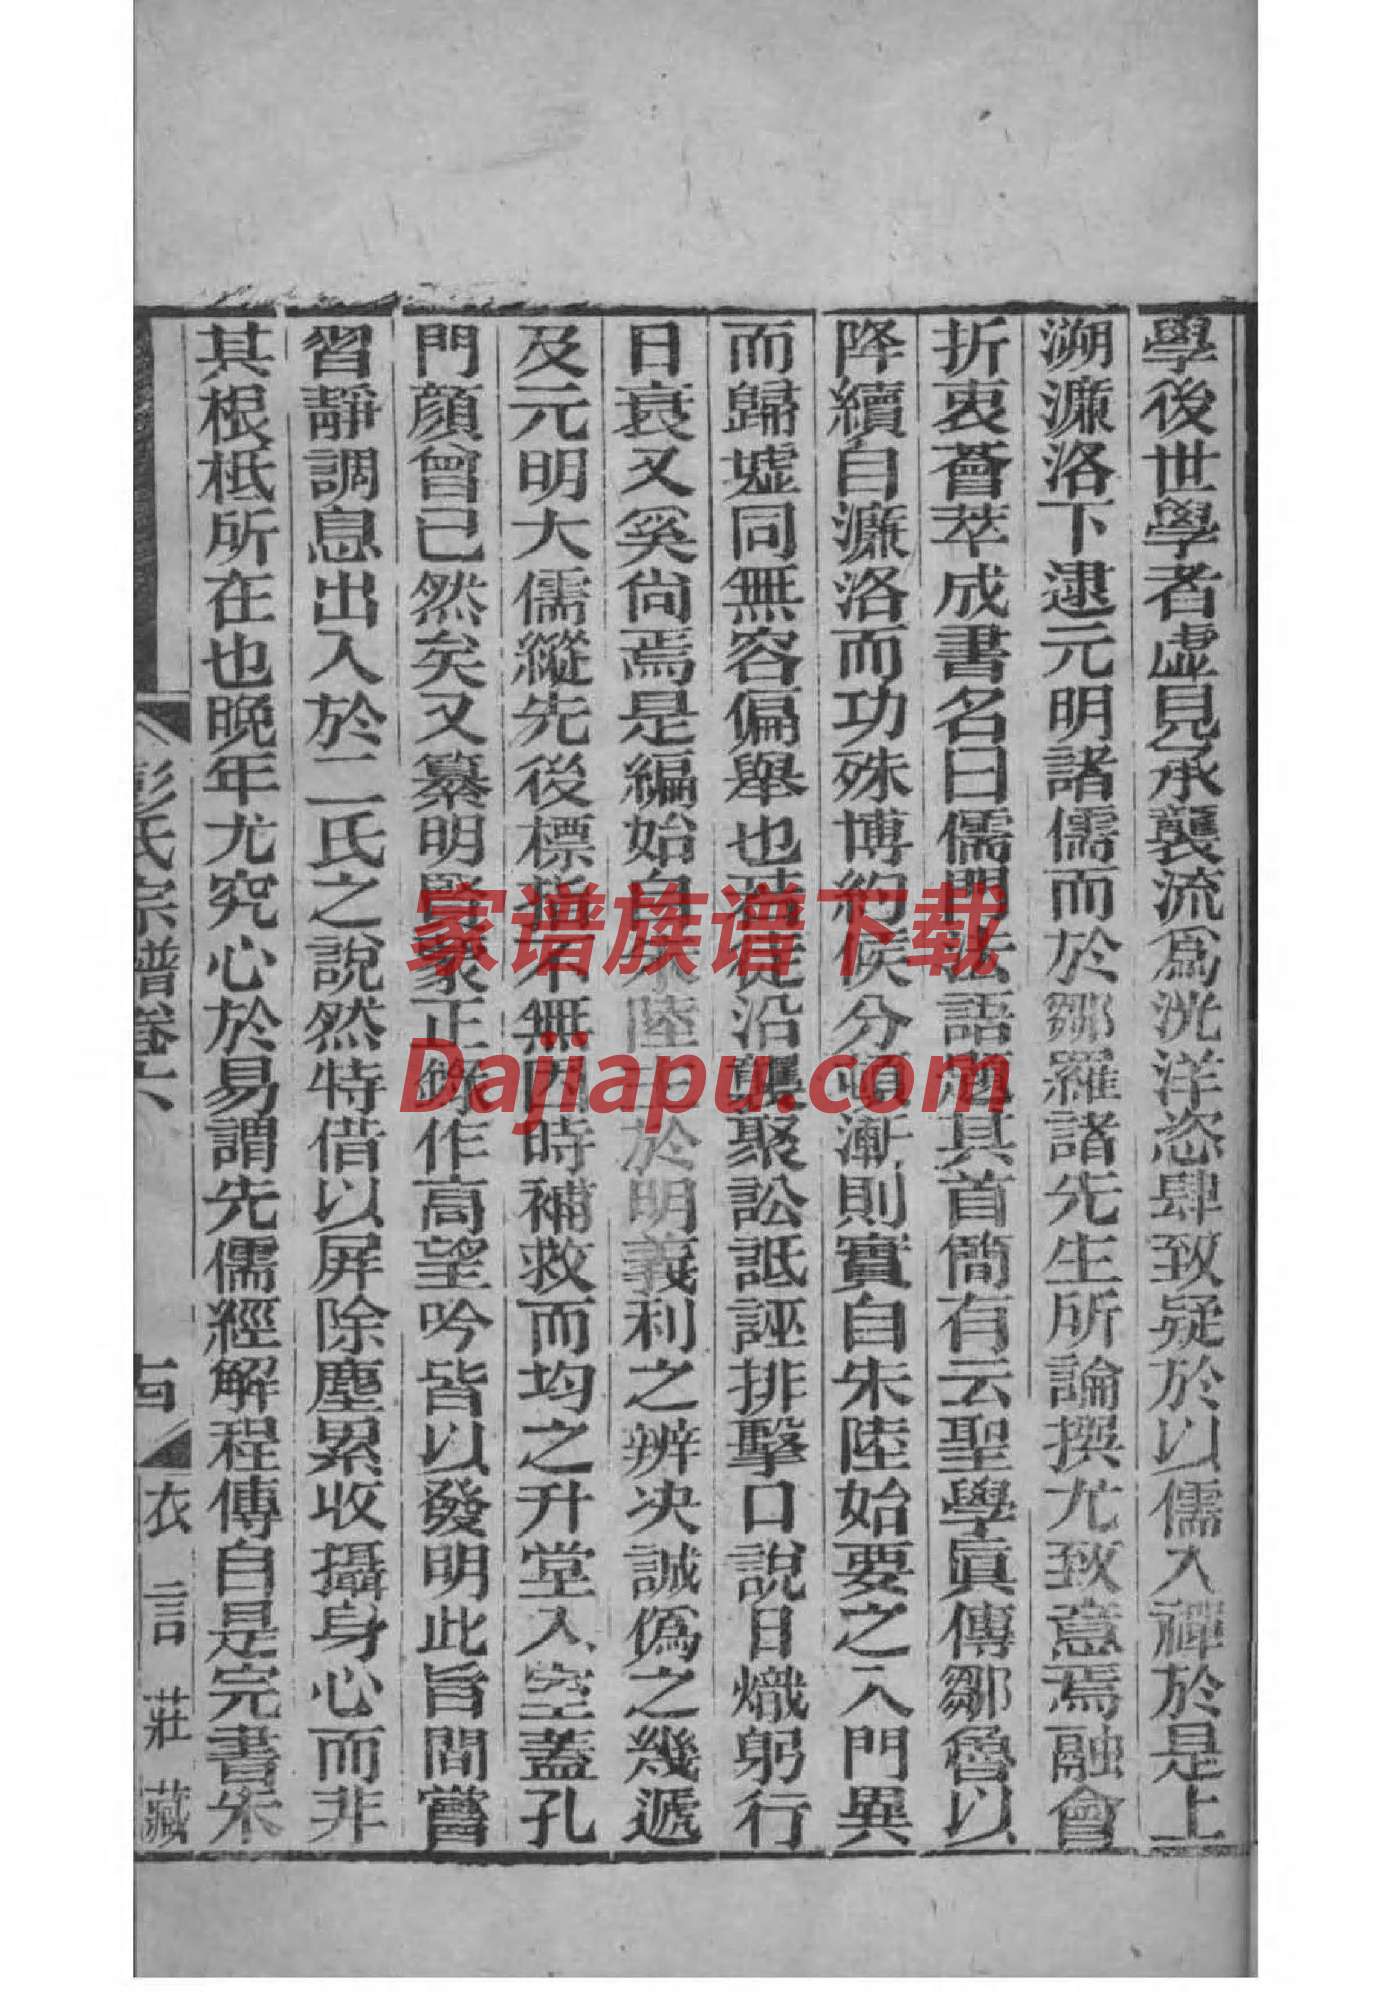 學後世學者虛見承襲流爲洸洋恣肆致疑於以儒入禪於是上
溯濂洛下逮元明諸儒而於鄒羅諸先生所論撰尤致意焉融會
折衷薈萃成書名曰儒門法語題其首簡有云聖學眞傳鄒魯以
降續自濂洛而功殊博約候分頓漸則實自朱陸始要之入門異
而歸墟同無容偏舉也若徒沿襲聚訟詆誣排擊口說日熾躬行
日衰又奚尚焉是編始自朱陸 於明義利之辨决誠僞之幾遞
及元明大儒縱先後標指不無因時補救而均之升堂入室蓋孔
門顏曾已然矣又纂明賢蒙正錄作高望吟皆以發明此旨間嘗
習靜調息出入於二氏之說然特借以屏除塵累收攝身心而非
其根柢所在也晚年尤究心於易謂先儒經解程傳自是完書朱
彭氏宗譜卷六
古
衣言莊藏
家谱族谱下载
Dajiapu.com